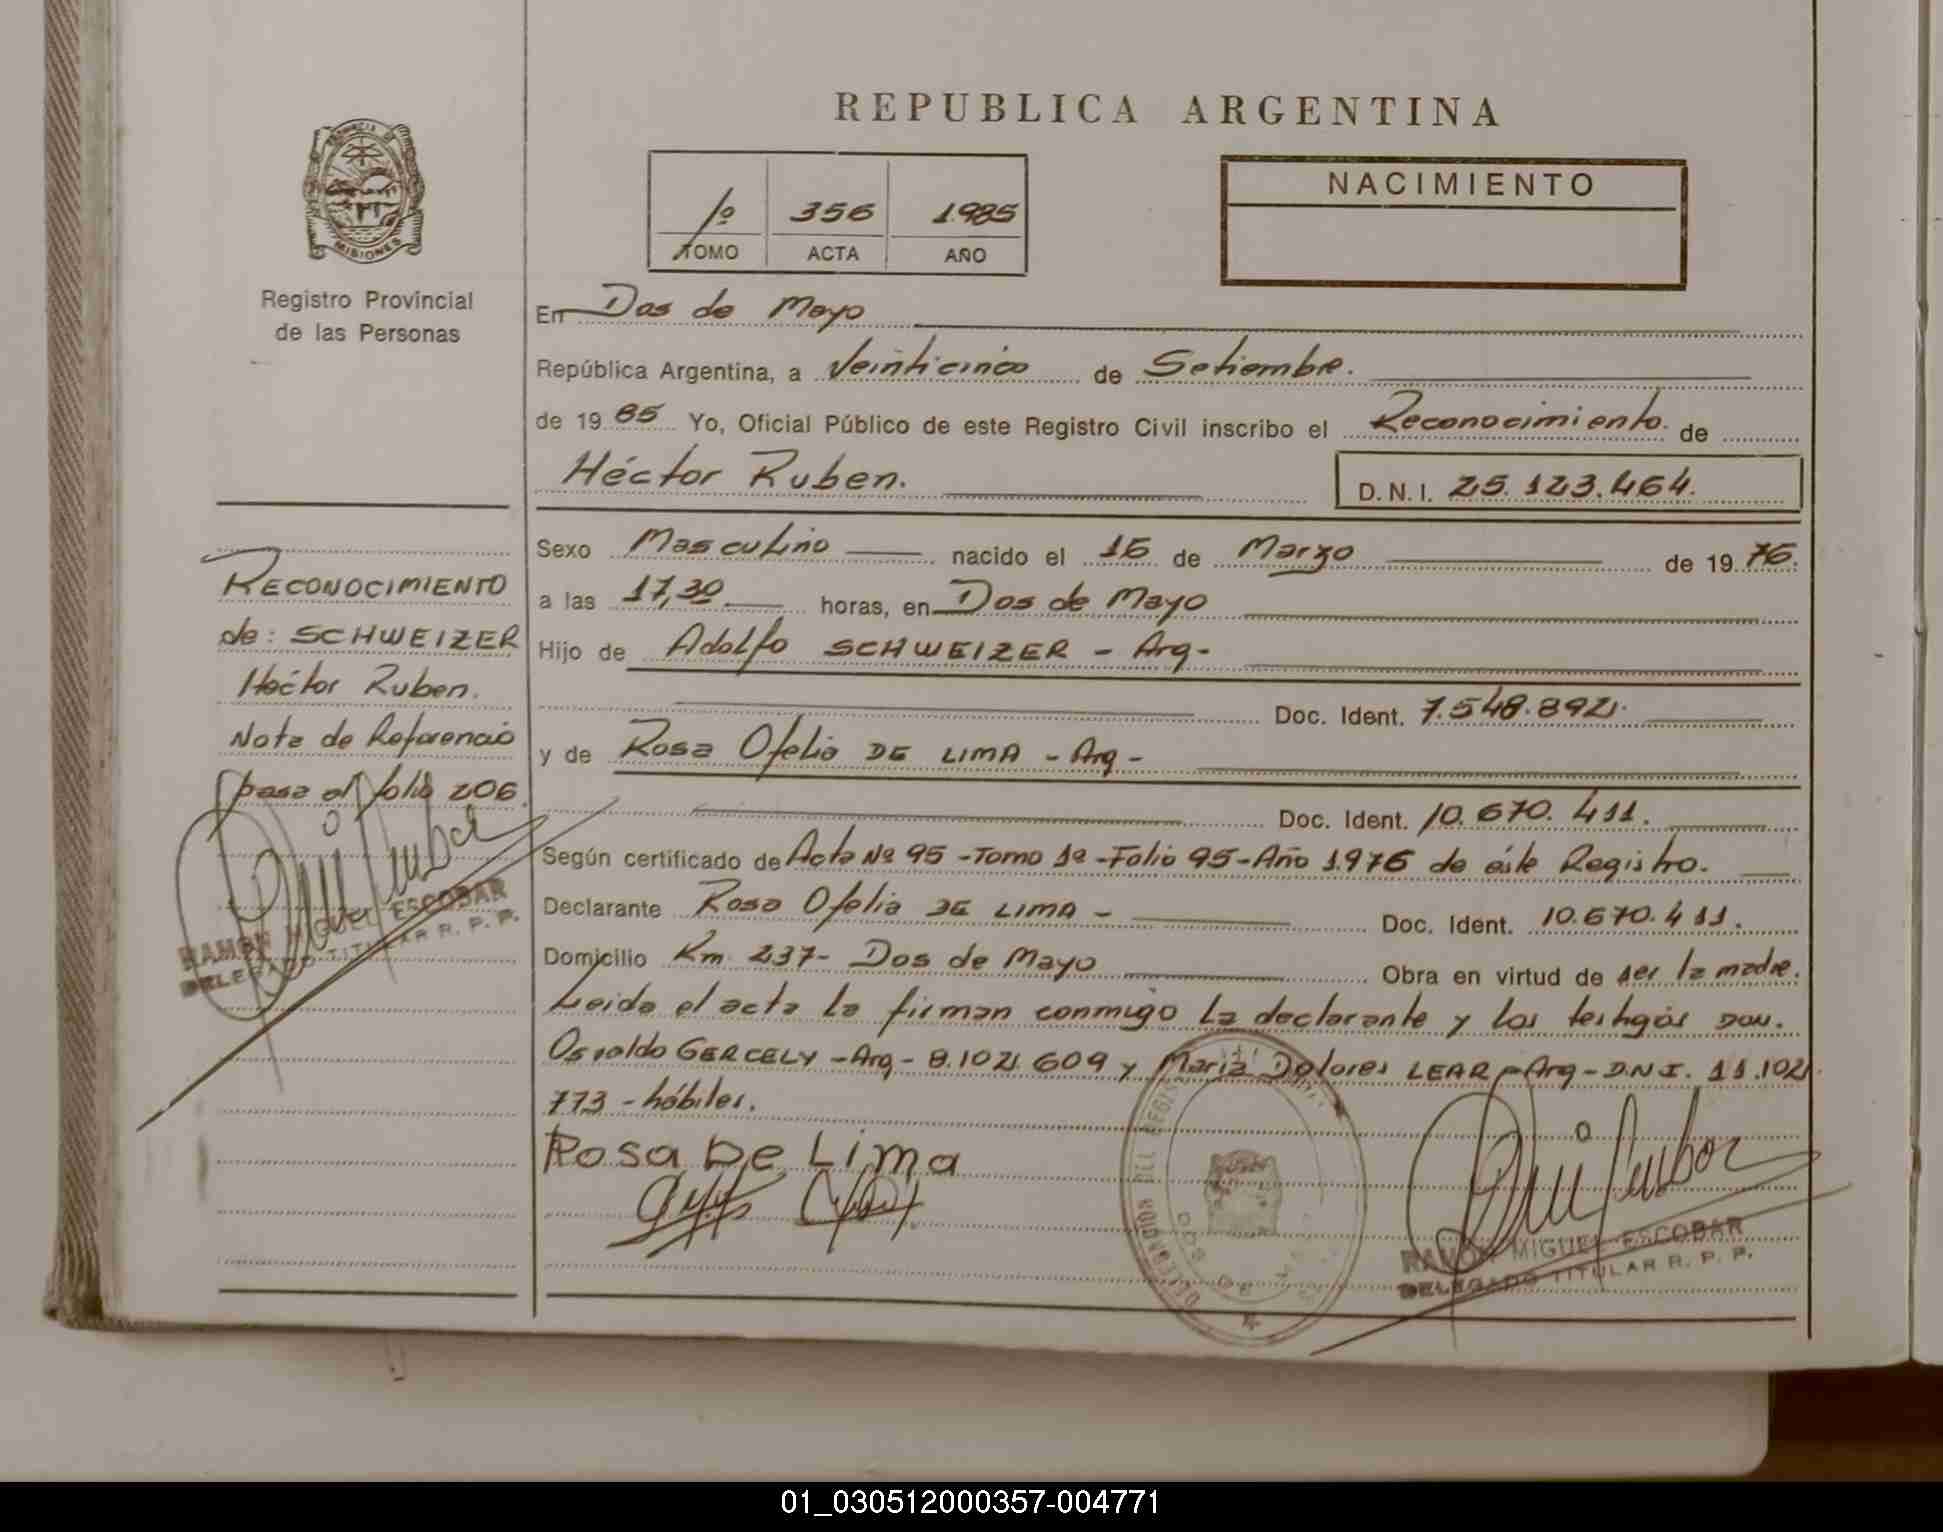 REPUBLICA ARGENTINA
PROVINCIA DE
MISIONES
Registro Provincial
de las Personas
1º 356 1985
TOMO ACTA AÑO
NACIMIENTO
En Dos de Mayo
República Argentina, a Veinticinco de Setiembre.
de 19 85 Yo, Oficial Público de este Registro Civil inscribo el Reconocimiento de
Héctor Ruben. D.N.I. 25.123.464.
Sexo Masculino nacido el 16 de Marzo de 19 76.
a las 17,30 horas, en Dos de Mayo
Hijo de Adolfo SCHWEIZER - Arg-
Doc. Ident. 7.548.892.
y de Rosa Ofelia DE LIMA - Arg -
Doc. Ident. 10.670.411.
Según certificado de Acta Nº 95 - Tomo 1º - Folio 95 - Año 1.976 de éste Registro.
Declarante Rosa Ofelia DE LIMA - Doc. Ident. 10.670.411.
Domicilio Km 237- Dos de Mayo Obra en virtud de ser la madre.
Leida el acta la firman conmigo la declarante y los testigos DON.
Osvaldo GERCELY - Arg - 8.102.609 y Maria Dolores LEAR - Arg - D.N.I. 11.102.
773 - hábiles.
Rosa De Lima
RAMON MIGUEL ESCOBAR
DELEGADO TITULAR R. P. P.
DELEGACION DEL REGIS
DOS DE MAYO
RECONOCIMIENTO
de: SCHWEIZER
Héctor Ruben.
Nota de Referencia
pasa al folio 206
RAMON MIGUEL ESCOBAR
DELEGADO TITULAR R. P. P.
01_030512000357-004771